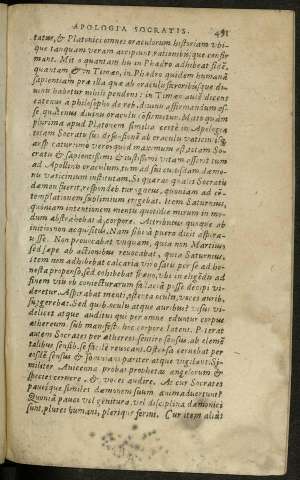 APOLOGIA SOCRATIS. 491
tatur, & Platonici omnes oraculorum historiam ubi-
que tanquam veram accipiunt, rationibusque confir
mant. Plato quantam in Phædro adhibeat fidem,
quantam & in Timæo, in Phædro quidem humanā
sapientiam præ illa quæ ab oraculis sacerdotibusque di-
untur habetur nihili pendens: in Timæo autē dicent
catenus à philosopho de rebus divinis affirmandum es
se quatenus divino oraculo cōfirmetur. Mitto quàm
plurima apud Platonem similia certè in Apologia
totam Socratis defensionē ab oraculo vaticinioque
Socratis & sapientissimi & iustissimi vitam asserit tum
ad Apollinis oraculum, tum ad sui cuiusdam dæmo-
nis vaticinium institutam. Si quæras qualis Socratis
dæmon fuerit, respondebitur igneus, quoniam ad cō-
templationem sublimium erigebat. Item Saturnius,
quoniam intentionem mentis quotidie mirum in mo-
dum abstrahebat à corpore. Attributus quoque ab
initio non acquisitus. Nam sibi à puero dicit aspira-
visse. Non provocabat unquam, quia non Martius
sed sæpe ab actionibus revocabat, quia Saturnius,
item non adhibebat calcaria viro satis per se ad ho-
nesta propenso, sed cohibebat
finem viro ex coniecturarum fallacia posse decipi vi-
deretur. Aspirabat menti, astricta oculis, voces auribus,
suggerebat. Sed quibus oculis atque auribus? visus vi-
delicet atque auditus qui per omne eduntur corpus
æthereum, sub manifesto hoc corpore latens. Poterat
autem Socrates per æthereos sentire sensus, ab elemē-
talibus sensibus se facilè revocans. Offerebat
eiusdē sensus & somnians pariter atque vigilans. Si-
militer Avicenna probat prophetas angelorum &
species cernere, & voces audire. At cur Socrates
paucique similes dæmonem suum animadvertunt?
Quoniā pauci vel genitura, vel disciplina dæmonici
sunt, plures humani, plerique ferini. Cur item alius